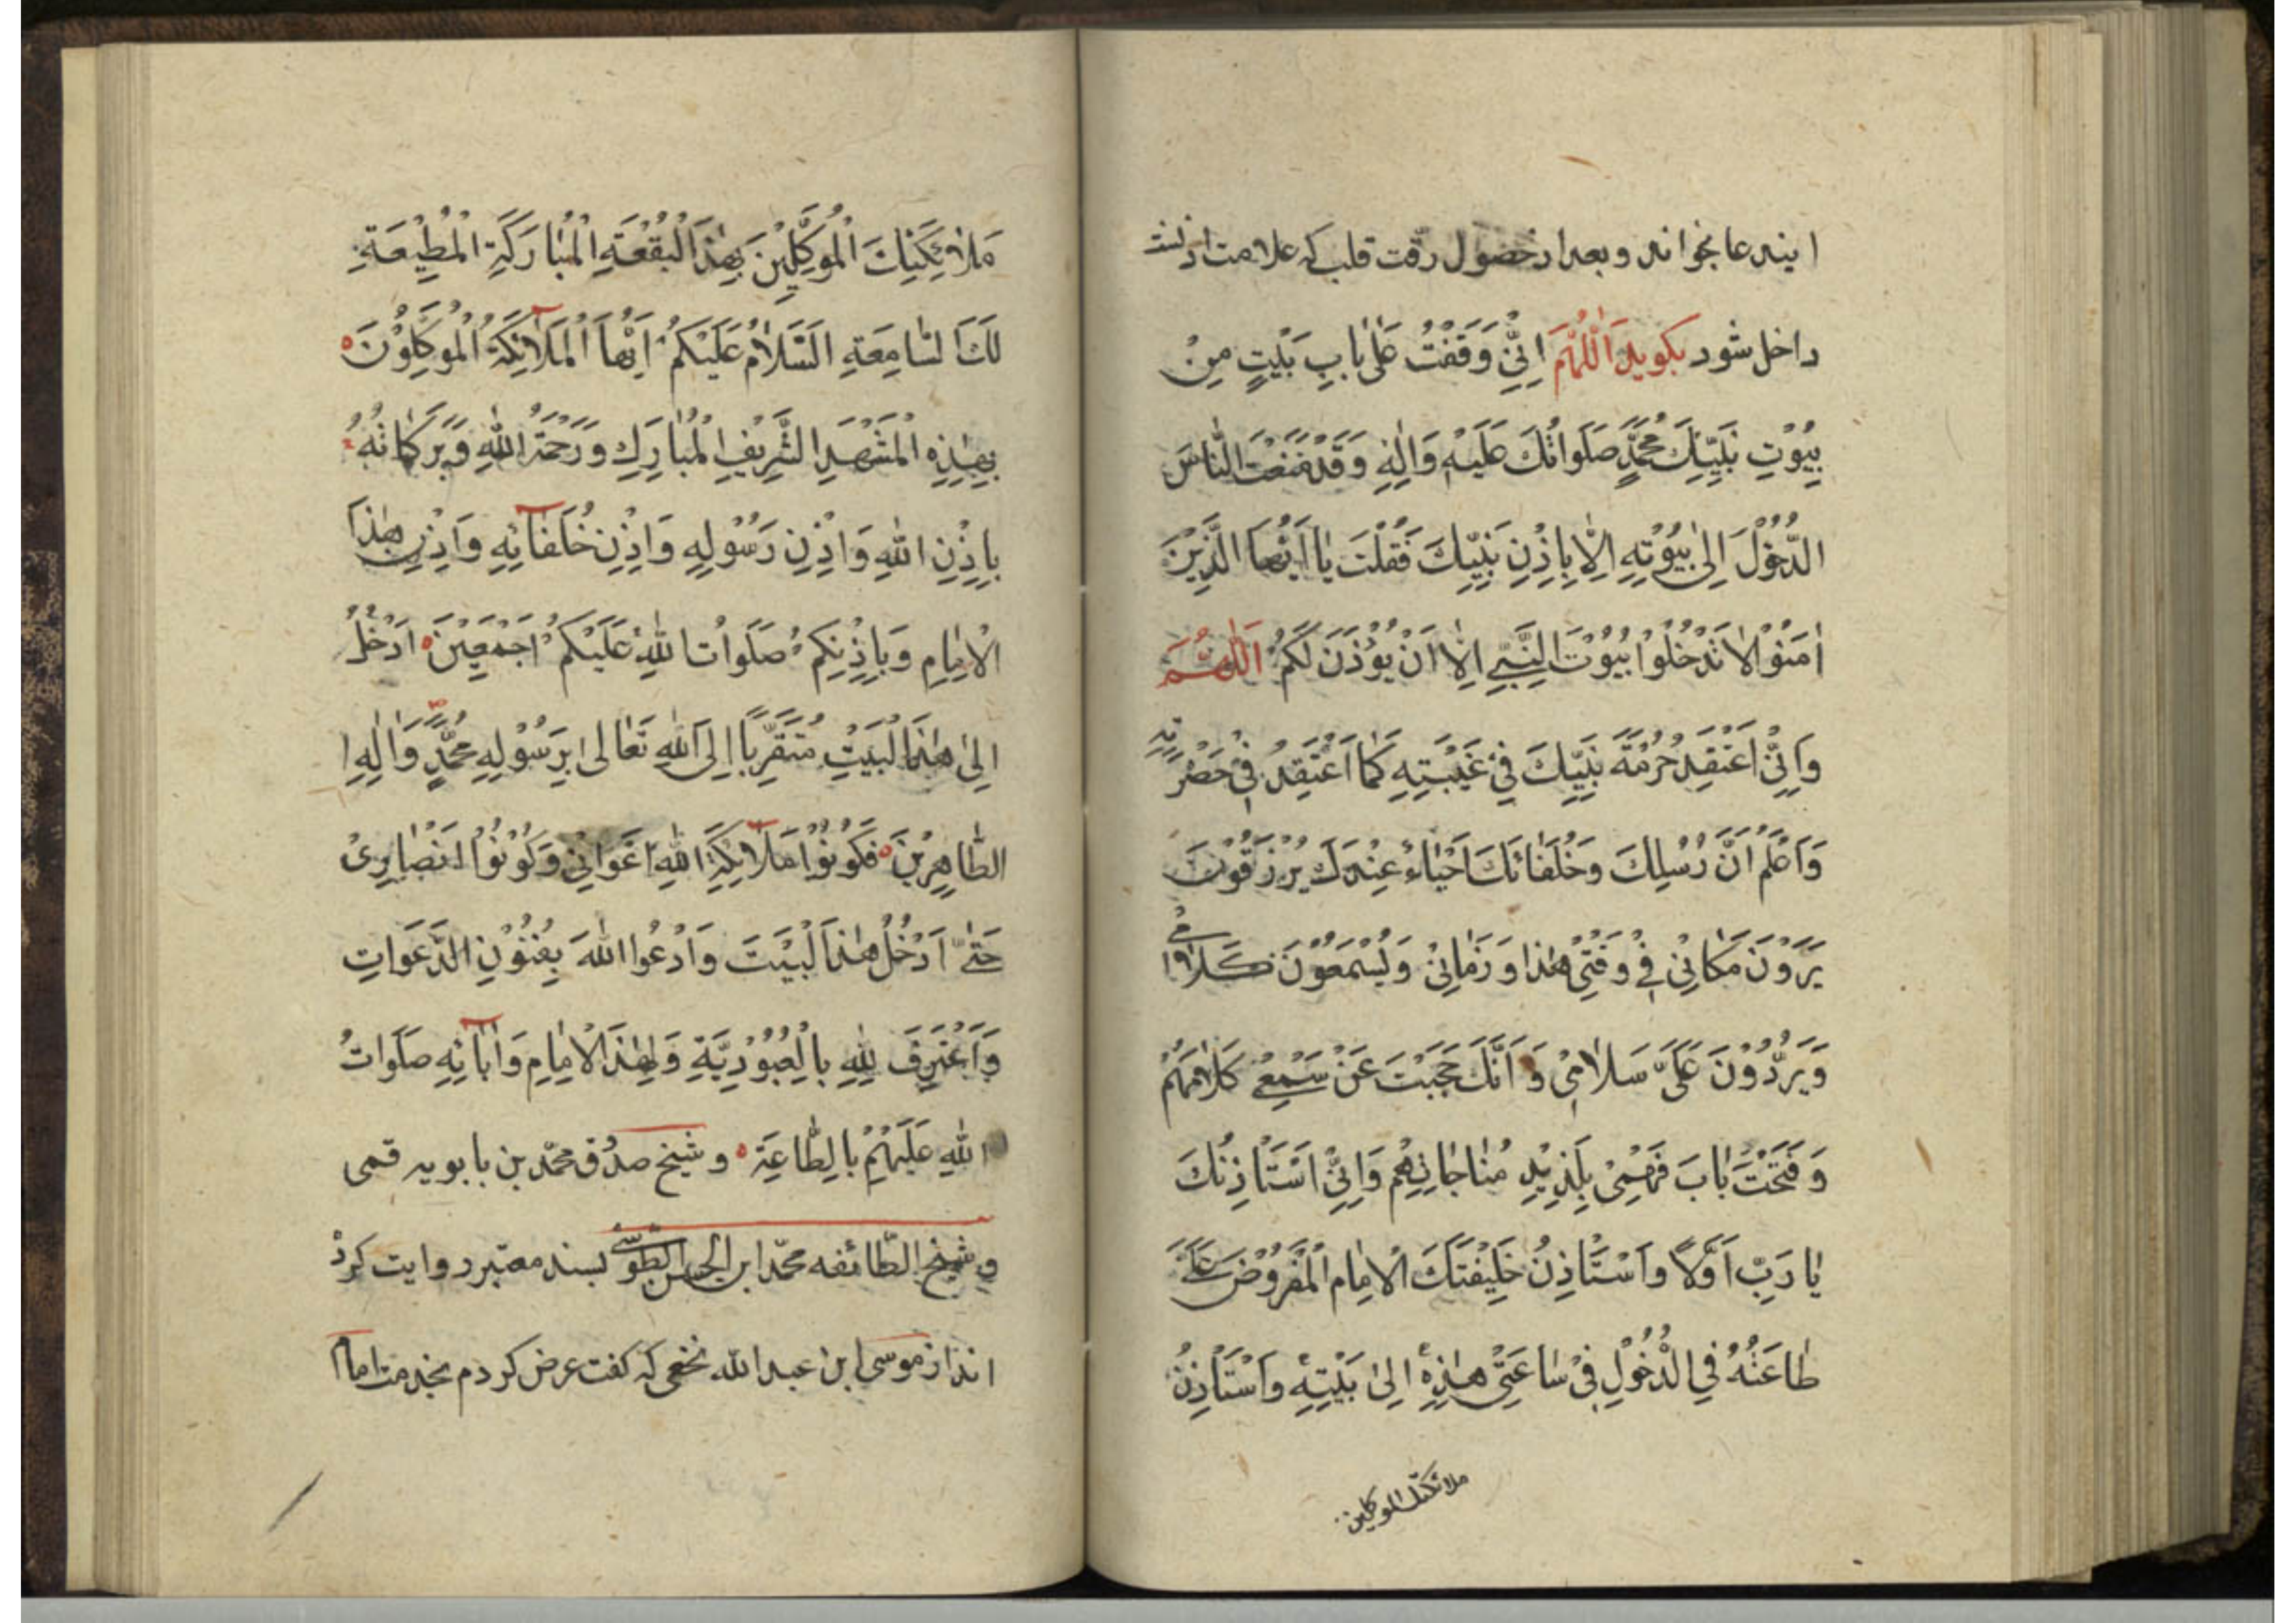 ایندعا بخواند و بعد از حضول رقّت قلب که علامت اذنست
داخل شود بکوید اَللّٰهُمَّ اِنِّیْ وَقَفْتُ عَلٰی بَابِ بَیْتٍ مِنْ
بِیُوْتِ نَبِیِّكَ مُحَمَّدٍ صَلَوَاتُكَ عَلَیْهِ وَاٰلِهِ وَقَدْ مَنَعْتَ النَّاسَ
الدُّخُوْلَ اِلٰی بِیُوْتِهِ اِلَّا بِاِذْنِ نَبِیِّكَ فَقُلْتَ یٰا اَیُّهَا الَّذِیْنَ
اٰمَنُوْا لٰا تَدْخُلُوْا بُیُوْتَ النَّبِیِّ اِلّٰا اَنْ یُوْذَنَ لَكُمْ اَللّٰهُمَّ
وَاِنِّیْ اَعْتَقِدُ حُرْمَةَ نَبِیِّكَ فِیْ غَیْبَتِهِ كَمٰا اَعْتَقِدُ فِیْ حَضْرَتِهِ
وَاَعْلَمُ انَّ رُسُلِكَ وَخُلَفٰائَكَ اَحْیٰاءُ عِنْدَكَ یُرْزَقُوْنَ
یَرَوْنَ مَكٰانِیْ فِیْ وَقْتِیْ هٰذا وَزَمٰانِیْ وَیَسْمَعُوْنَ كَلاٰمِیْ
وَیَرُدُّوْنَ عَلَیَّ سَلاٰمِیْ وَ اَنَّكَ حَجَبْتَ عَنْ سَمْعِیْ كَلاٰمَهُمْ
وَفَتَحْتَ بٰابَ فَهْمِیْ بِلَذِیْذِ مُنٰاجٰاتِهِمْ وَاِنِّیْ اَسْتَاْذِنُكَ
یٰا رَبِّ اَوَّلاً وَاَسْتَاْذِنُ خَلِیْفَتَكَ الْاِمٰام الْمَفْرُوْضَ عَلَیَّ
طٰاعَتُهُ فِی الدُّخُوْلِ فِیْ سٰاعَتِیْ هٰذِهِ اِلیٰ بَیْتِهِ وَاَسْتَاْذِنُ
ملائکتك الموکلین
مَلاٰئِكَتِكَ الْمُوَكَّلِیْنَ بِهٰذِا الْبُقْعَةِ الْمُبٰارَكَةِ الْمُطِیْعَةِ
لَكَ السّٰامِعَةِ اَلسَّلاٰمُ عَلَیْكُمْ اَیُّهاَ الْمَلآئِكَةُ الْمُوَكِّلُوْنَ
بِهٰذِهِ الْمَشْهَدِ الشَّرِیْفِ الْمُبٰارَكِ وَرَحْمَةُ اللّٰهِ وَبَرَكٰاتُهُ
بِاِذْنِ اللّٰهِ وَاِذْنِ رَسُوْلِهِ وَاِذْنِ خُلَفٰآئِهِ وَاِذْنِ هٰذَا
الْاِمٰامِ وَبِاِذْنِكُمْ صَلَوٰاتُ اللّٰهِ عَلَیْكُمْ اَجْمَعِیْنَ اَدْخُلُ
اِلیٰ هٰذَا الْبَیْتِ مُتَقَرِّباً اِلَی اللّٰهِ تَعٰالی بِرَسُوْلِهِ مُحَمَّدٍ وَاٰلِهِ ا
الطّٰاهِرِیْنَ فَكُوْنُوْا مَلآئِكَةَ اللّٰهِ اَعْوَانِیْ وَكُوْنُوْا اَنْصٰارِیْ
حَتّٰی اَدْخُلَ هٰذَا الْبَیْتَ وَاَدْعُوا اللّٰهَ بِفُنُوْنِ الدَّعَوَاتِ
وَاَعْتَرِفَ لِلّٰهِ بِالْعُبُوْدِیَّةِ وَلِهٰذَا الْاِمٰامِ وَاٰبآئِهِ صَلَوَاتُ
اللّٰهِ عَلَیْهِمْ بِالطّٰاعَةِ و شیخ صدُق محمّد بن بابویه قمی
و شیخ الطّائفه محمّد ابن الحسن الطّوسی بسند معتبر روایت کرد
اند از موسی ابن عبد الله نخعی که گفت عرض کردم بخدمت امام